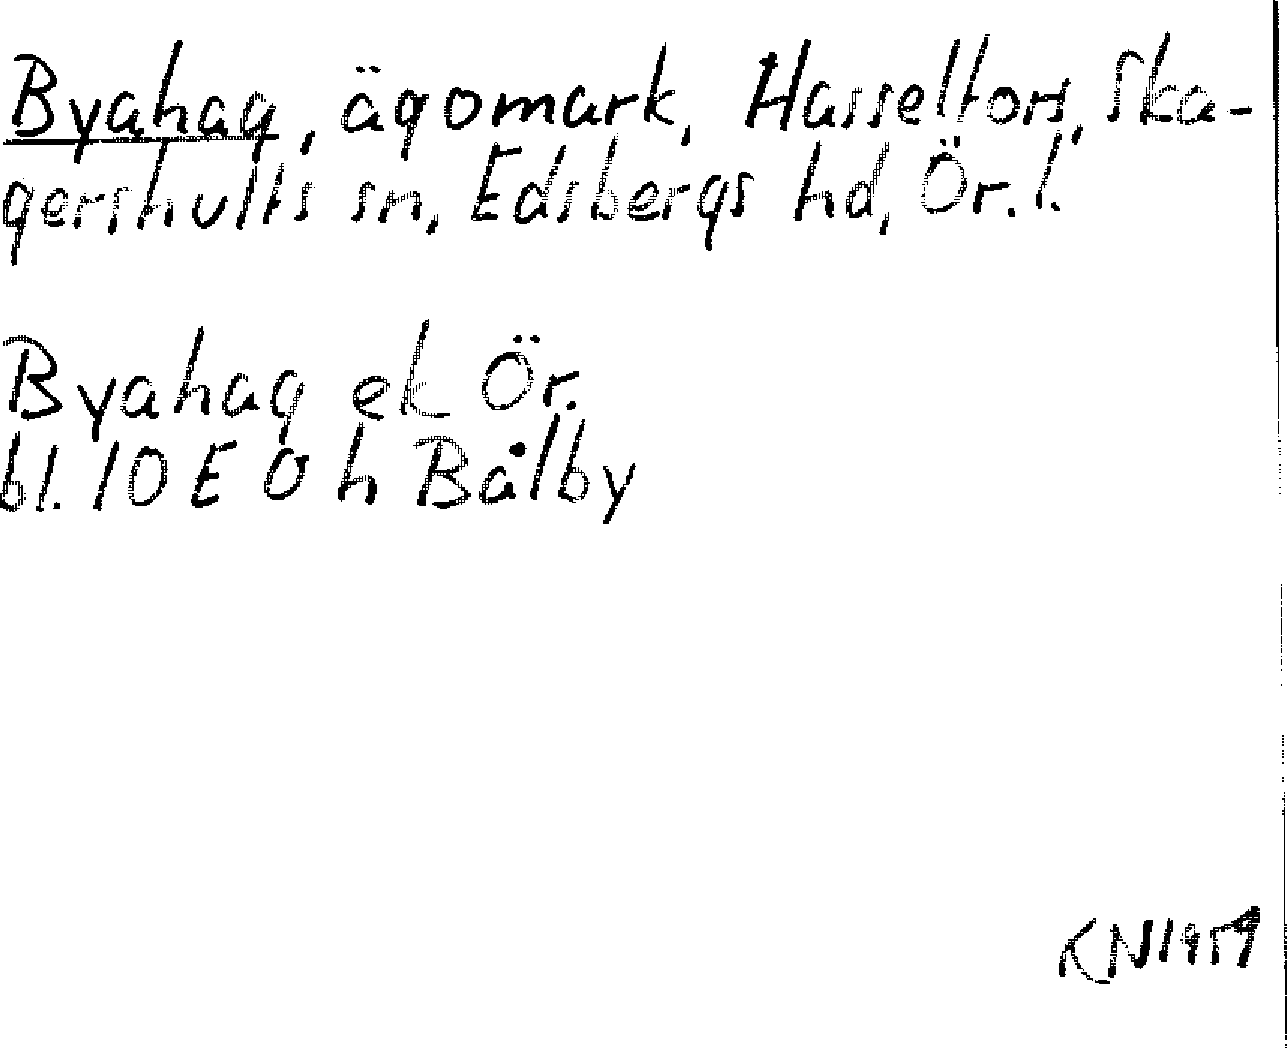 Byahag, ägomark, Hasselfors, Ska-
gershults sn, Edsbergs hd, Ör. l.
Byahag ek Ör.
bl. 10 E 0 h Bålby
KN 1959